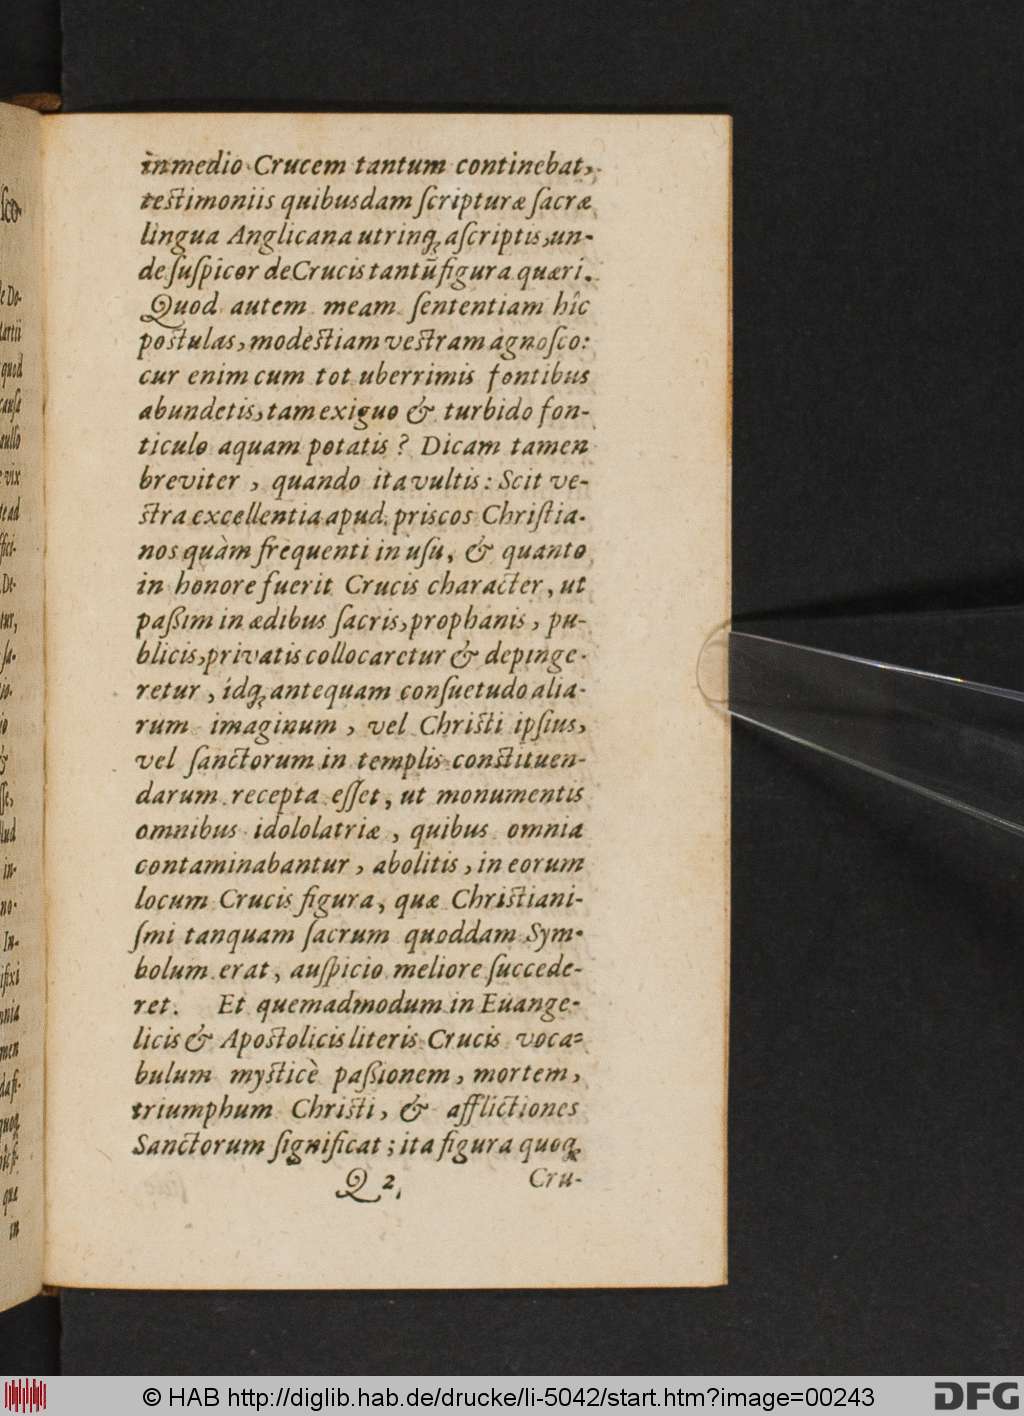 in medio Crucem tantum continebat,
testimoniis quibusdam ſcripturæ ſacræ
lingua Anglicana utrinq; aſcriptis, un-
de ſuſpicor de Crucis tantũ figura quæri.
Quod autem meam ſententiam hîc
poſtulas, modeſtiam veſtram agnoſco:
cur enim cum tot uberrimis fontibus
abundetis, tam exiguo & turbido fon-
ticulo aquam potatis? Dicam tamen
breviter, quando ita vultis: Scit ve-
ſtra excellentia apud priscos Chriſtia-
nos quàm frequenti in uſu, & quanto
in honore fuerit Crucis character, ut
paßim in ædibus ſacris, prophanis, pu-
blicis, privatis collocaretur & depinge-
retur, idq; antequam conſuetudo alia-
rum imaginum, vel Chriſti ipſius,
vel ſanctorum in templis conſtituen-
darum recepta eſſet, ut monumentis
omnibus idololatriæ, quibus omnia
contaminabantur, abolitis, in eorum
locum Crucis figura, quæ Chriſtiani-
ſmi tanquam ſacrum quoddam Sym-
bolum erat, auſpicio meliore ſuccede-
ret. Et quemadmodum in Euange-
licis & Apoſtolicis literis Crucis voca-
bulum myſticè paßionem, mortem,
triumphum Chriſti, & afflictiones
Sanctorum ſignificat; ita figura quoq;
Q 2 Cru-
ſco-
quod
vix
ad
De-
tur,
ſa-
&
in-
no-
In-
quæ
in
© HAB http://diglib.hab.de/drucke/li-5042/start.htm?image=00243
DFG